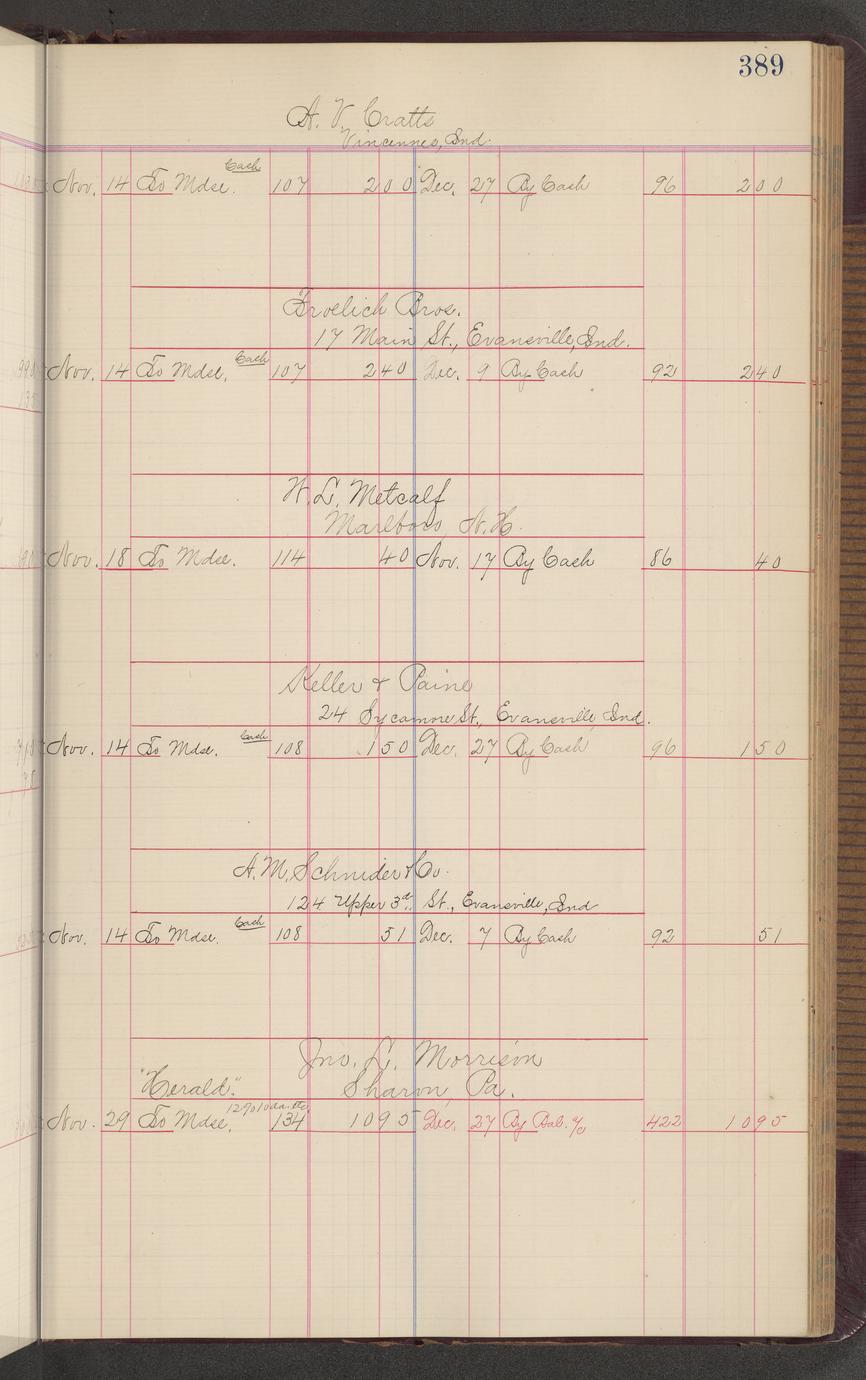 389
A. V. Cratts
Vincennes, Ind.
Cash
Nov. 14 To Mdse. 107 200 Dec. 27 By Cash 96 200
Froelich Bros.
17 Main St., Evansville, Ind.
Cash
Nov. 14 To Mdse. 107 240 Dec. 9 By Cash 92 240
W. L. Metcalf
Marlboro, N. H.
Nov. 18 To Mdse. 114 40 Nov. 17 By Cash 86 40
Keller & Paine
24 Sycamore St., Evansville, Ind.
Cash
Nov. 14 To Mdse. 108 150 Dec. 27 By Cash 96 150
A. M. Schnider & Co.
124 Upper 3d. St., Evansville, Ind
Cash
Nov. 14 To Mdse. 108 51 Dec. 7 By Cash 92 51
Jno. L. Morrison
"Herald". Sharon, Pa.
12%10da. etc.
Nov. 29 To Mdse. 134 1095 Dec. 27 By Bal. % 422 1095